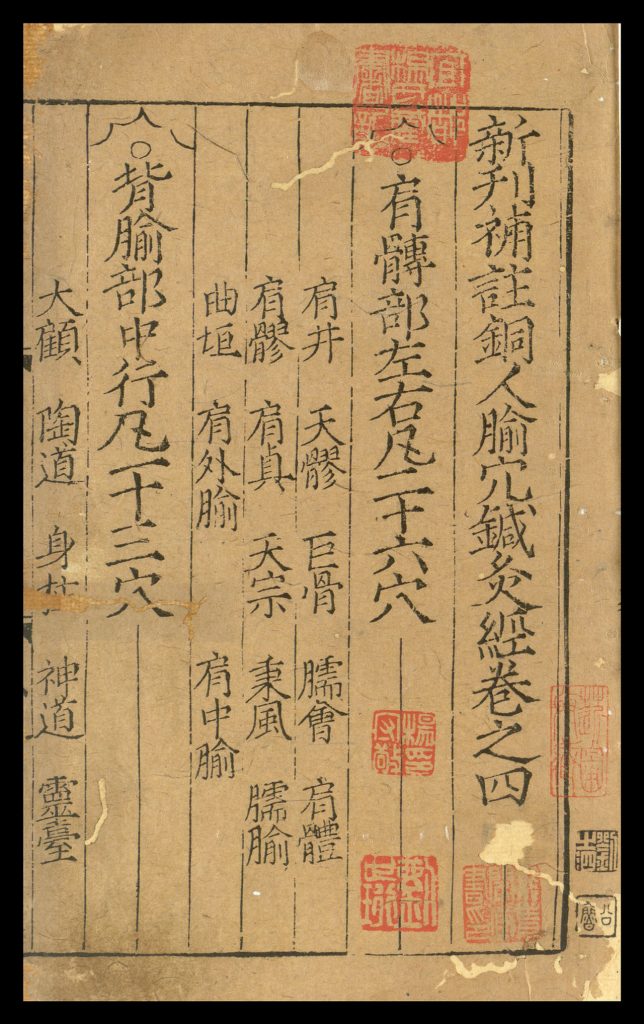 新刊補註銅人腧穴鍼灸經卷之四
○肩髆部左右凡二十六穴
肩井 天髎 巨骨 臑會 肩體
肩髎 肩貞 天宗 秉風 臑腧
曲垣 肩外腧 肩中腧
○背腧部中行凡一十三穴
大顀 陶道 身柱 神道 靈臺
宜都楊氏藏書記
楊印守敬